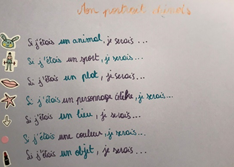 Mon portrait chinois
Si j'étais un animal, je serais...
Si j'étais un sport, je serais...
Si j'étais un plat, je serais...
Si j'étais un personnage célèbre, je serais...
Si j'étais un lieu, je serais...
Si j'étais une couleur, je serais...
Si j'étais un objet, je serais...